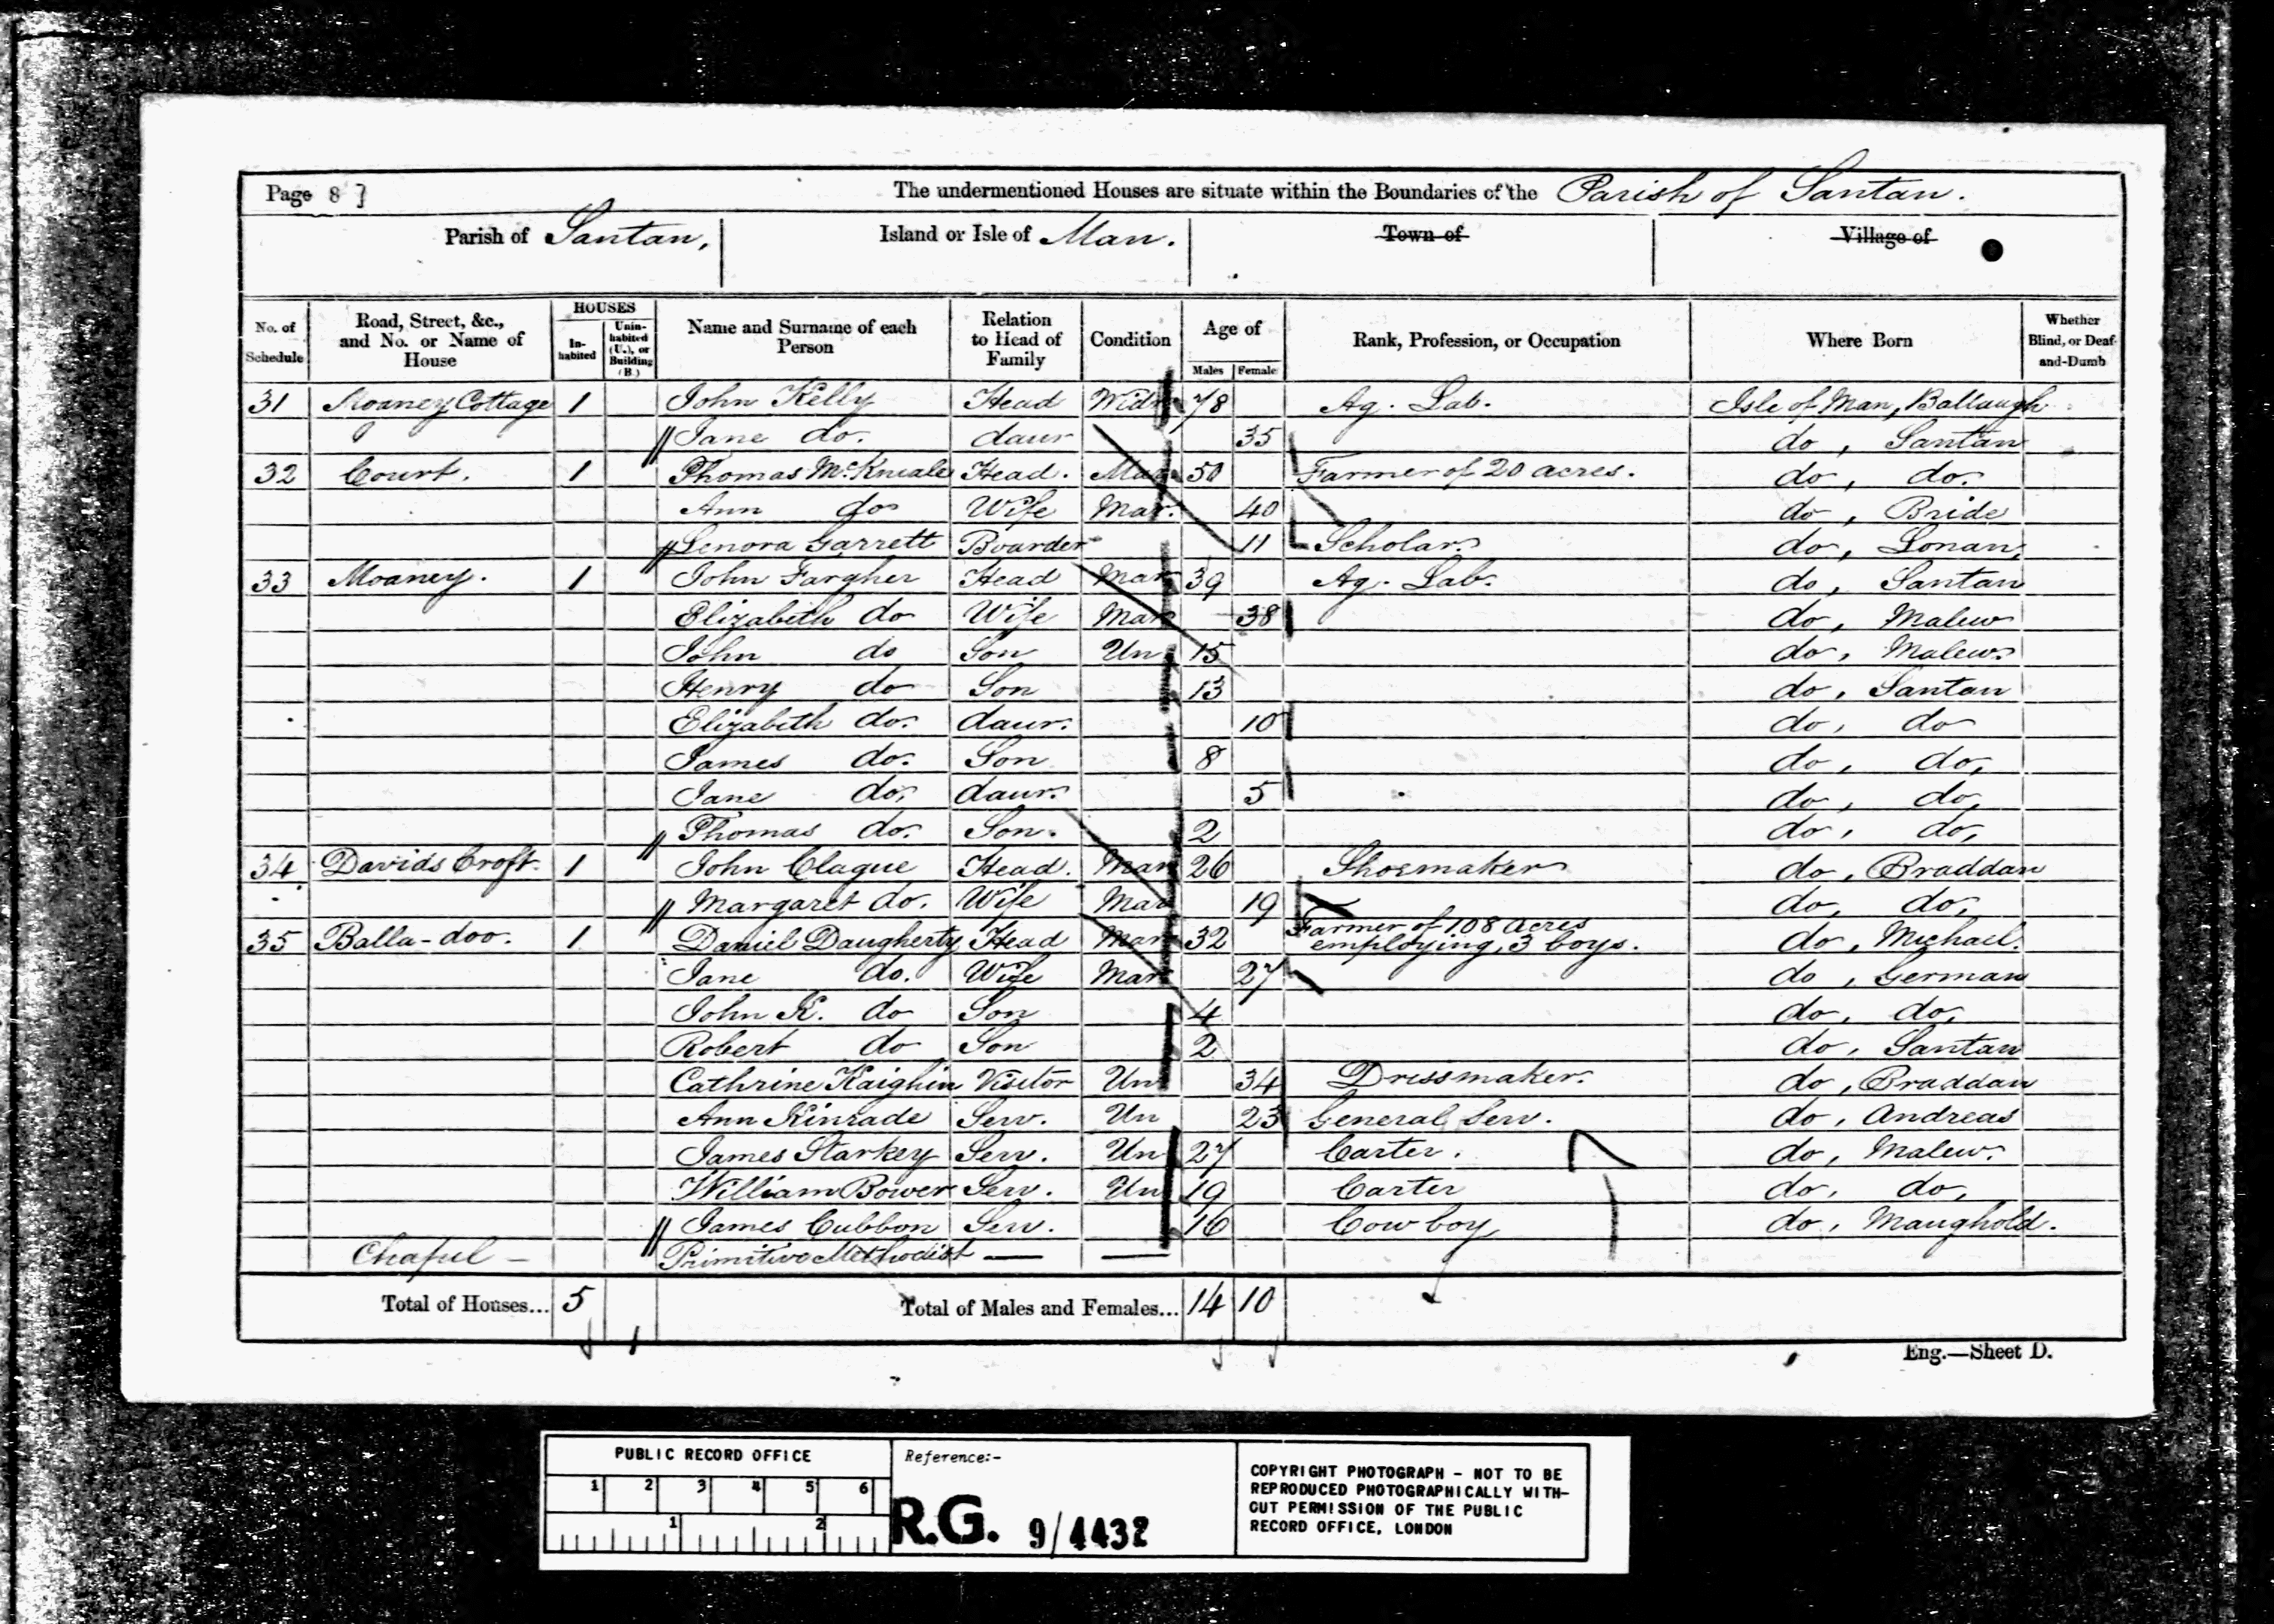 Page 8 ] The undermentioned Houses are situate within the Boundaries of the Parish of Santan.
Parish of Santan, Island or Isle of Man. Town of Village of
No. of Schedule Road, Street, &c., and No. or Name of House HOUSES In-habited Unin-habited (U.), or Building (B.) Name and Surname of each Person Relation to Head of Family Condition Age of Males Female Rank, Profession, or Occupation Where Born Whether Blind, or Deaf-and-Dumb
31 Moaney Cottage 1 John Kelly Head Widr 78 Ag. Lab. Isle of Man, Ballaugh
Jane do. daur 35 do, Santan
32 Court. 1 Thomas McKneale Head. Mar 50 Farmer of 20 acres. do, do.
Ann do Wife Mar. 40 do, Bride
Lenora Garrett Boarder 11 Scholar. do, Lonan,
33 Moaney. 1 John Fargher Head Mar 39 Ag. Lab. do, Santan
Elizabeth do Wife Mar 38 do, Malew
John do Son Un 15 do, Malew.
Henry do Son 13 do, Santan
Elizabeth do. daur. 10 do, do
James do. Son 8 do, do,
Jane do, daur. 5 do, do,
Thomas do. Son. 2 do, do,
34 Davids Croft. 1 John Clague Head. Mar 26 Shoemaker do, Braddan
Margaret do. Wife Mar 19 do, do,
35 Balla-doo. 1 Daniel Daugherty Head Mar 32 Farmer of 108 acres employing, 3 boys. do, Michael.
Jane do. Wife Mar 27 do, German
John K. do Son 4 do, do,
Robert do Son 2 do, Santan
Cathrine Kaighin Visitor Un 34 Dressmaker. do, Braddan
Ann Kinrade Serv. Un 23 General Serv. do, Andreas
James Starkey Serv. Un 27 Carter. do, Malew.
William Bower Serv. Un 19 Carter do, do,
James Cubbon Serv. 16 Cow boy do, Maughold.
Chapel - Primitive Methodist — —
Total of Houses... 5 Total of Males and Females... 14 10
Eng.—Sheet D.
PUBLIC RECORD OFFICE
1 2 3 4 5 6
1 2
Reference:-
R.G. 9/4432
COPYRIGHT PHOTOGRAPH - NOT TO BE
REPRODUCED PHOTOGRAPHICALLY WITH-
OUT PERMISSION OF THE PUBLIC
RECORD OFFICE, LONDON